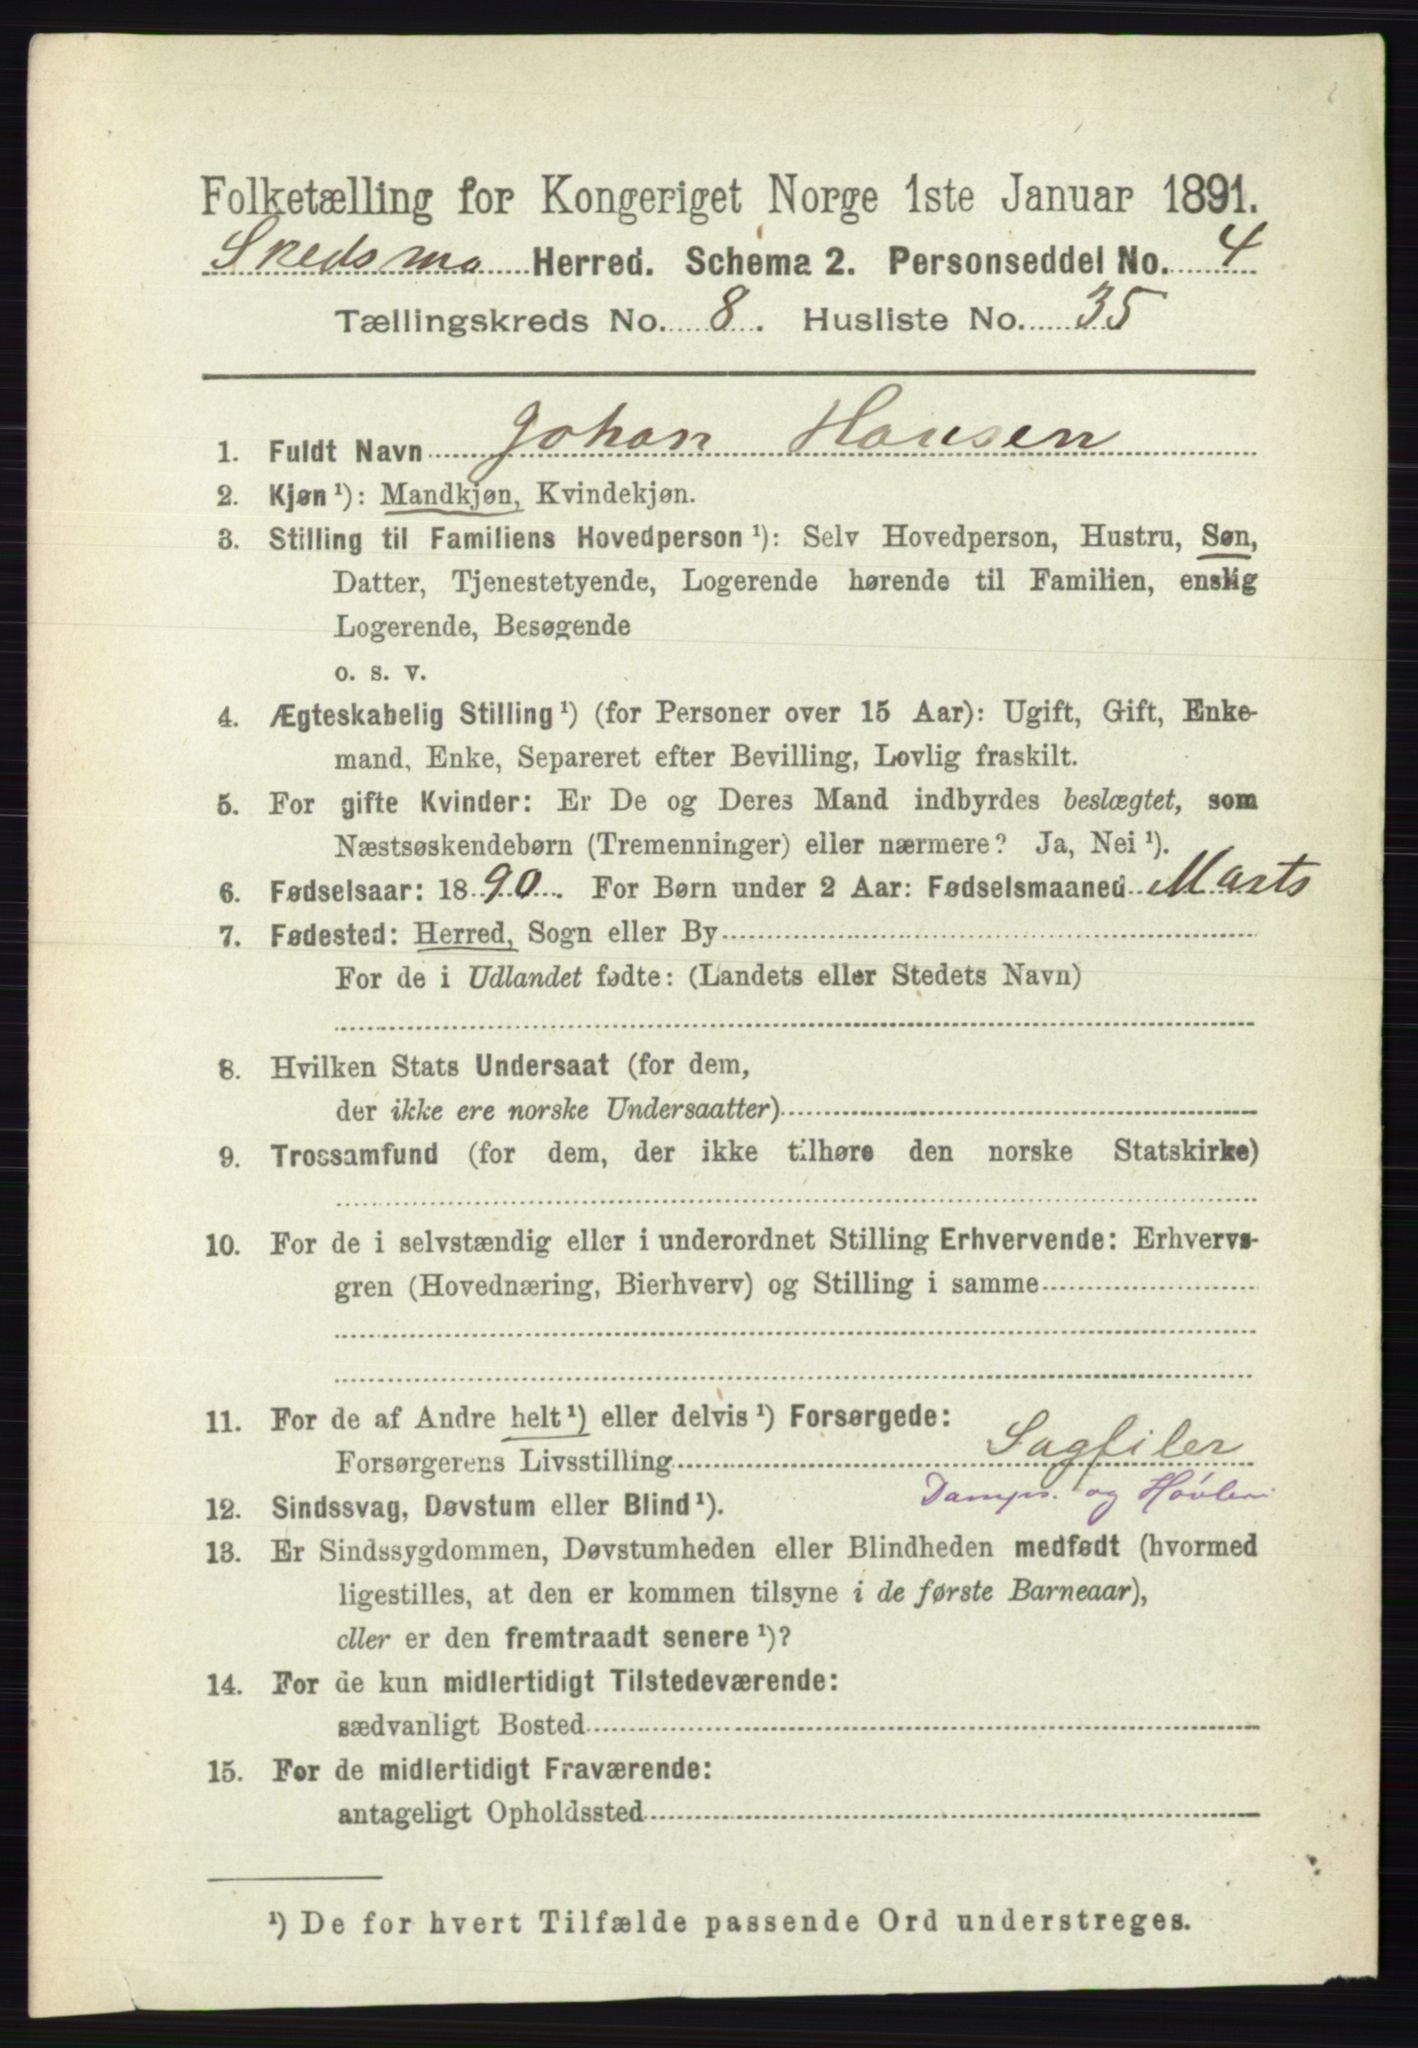 Folketælling for Kongeriget Norge 1ste Januar 1891.
Skedsmo Herred. Schema 2. Personseddel No. 4
Tællingskreds No. 8. Husliste No. 35
1. Fuldt Navn Johan Hansen
2. Kjøn ¹): Mandkjøn, Kvindekjøn.
3. Stilling til Familiens Hovedperson ¹): Selv Hovedperson, Hustru, Søn,
Datter, Tjenestetyende, Logerende hørende til Familien, enslig
Logerende, Besøgende
o. s. v.
4. Ægteskabelig Stilling ¹) (for Personer over 15 Aar): Ugift, Gift, Enke-
mand, Enke, Separeret efter Bevilling, Lovlig fraskilt.
5. For gifte Kvinder: Er De og Deres Mand indbyrdes beslægtet, som
Næstsøskendebørn (Tremenninger) eller nærmere? Ja, Nei ¹).
6. Fødselsaar: 1890. For Børn under 2 Aar: Fødselsmaaned Marts
7. Fødested: Herred, Sogn eller By
For de i Udlandet fødte: (Landets eller Stedets Navn)
8. Hvilken Stats Undersaat (for dem,
der ikke ere norske Undersaatter)
9. Trossamfund (for dem, der ikke tilhøre den norske Statskirke)
10. For de i selvstændig eller i underordnet Stilling Erhvervende: Erhvervs-
gren (Hovednæring, Bierhverv) og Stilling i samme
11. For de af Andre helt ¹) eller delvis ¹) Forsørgede:
Forsørgerens Livsstilling Sagfiler
Damps. og Høvleri
12. Sindssvag, Døvstum eller Blind ¹).
13. Er Sindssygdommen, Døvstumheden eller Blindheden medfødt (hvormed
ligestilles, at den er kommen tilsyne i de første Barneaar),
eller er den fremtraadt senere ¹)?
14. For de kun midlertidigt Tilstedeværende:
sædvanligt Bosted
15. For de midlertidigt Fraværende:
antageligt Opholdssted
¹) De for hvert Tilfælde passende Ord understreges.